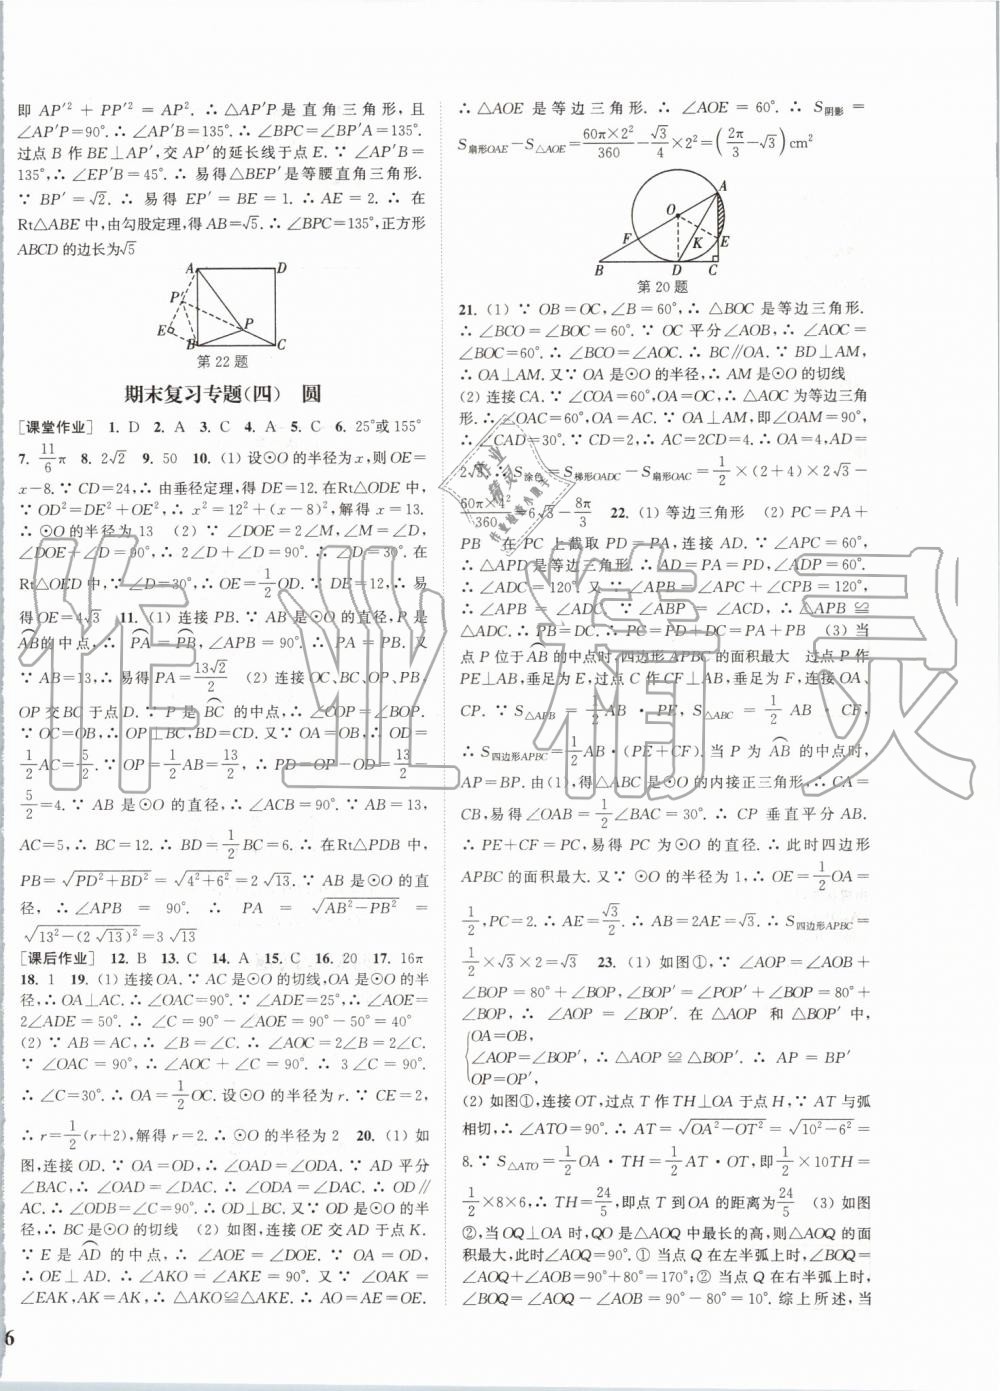 即 AP′² + PP′² = AP². ∴ △AP′P 是直角三角形, 且
∠AP′P=90°. ∴ ∠AP′B=135°. ∴ ∠BPC=∠BP′A=135°.
过点 B 作 BE⊥AP′, 交 AP′的延长线于点 E. ∵ ∠AP′B=
135°, ∴ ∠EP′B=45°. ∴ 易得△BEP′是等腰直角三角形.
∵ BP′=√2. ∴ 易得 EP′=BE=1. ∴ AE=2. ∴ 在
Rt△ABE 中, 由勾股定理, 得 AB=√5. ∴ ∠BPC=135°, 正方形
ABCD 的边长为√5
A D
P′
P
E
B C
第 22 题
期末复习专题(四) 圆
[课堂作业] 1. D 2. A 3. C 4. A 5. C 6. 25°或 155°
7. 11/6 π 8. 2√2 9. 50 10. (1) 设⊙O 的半径为 x, 则 OE=
x-8. ∵ CD=24, ∴ 由垂径定理, 得 DE=12. 在Rt△ODE 中,
∵ OD²=DE²+OE², ∴ x²=12²+(x-8)². 解得 x=13.
∴ ⊙O 的半径为 13 (2) ∵ ∠DOE=2∠M, ∠M=∠D,
∴ ∠DOE=2∠D. ∵ ∠DOE+∠D=90°, ∴ 2∠D+∠D=90°. ∴ ∠D=30°. 在
Rt△OED 中, ∵ ∠D=30°, ∴ OE=1/2 OD. ∵ DE=12, ∴ 易
得OE=4√3 11. (1) 连接 PB. ∵ AB 是⊙O 的直径, P 是
AB的中点, ∴ PA=PB, ∠APB=90°. ∴ PA=PB. 又
∵ AB=13, ∴ 易得 PA=13√2/2 (2) 连接 OC、OP、PB,
OP 交 BC 于点 D. ∵ P 是 BC 的中点, ∴ ∠COP=∠BOP.
∵ OC=OB, ∴ OP⊥BC, BD=CD. ∵ OA=OB, ∴ OD=
1/2 AC=5/2. ∵ OP=1/2 AB=13/2, ∴ PD=OP-OD=13/2-
5/2=4. ∵ AB 是⊙O 的直径, ∴ ∠ACB=90°. ∵ AB=13,
AC=5, ∴ BC=12. ∴ BD=1/2 BC=6. ∴ 在Rt△PDB 中,
PB=√(PD²+BD²)=√(4²+6²)=2√13. ∵ AB 是⊙O 的直
径, ∴ ∠APB = 90°. ∴ PA = √(AB²-PB²) =
√(13²-(2√13)²)=3√13
[课后作业] 12. B 13. C 14. A 15. C 16. 20 17. 16π
18. 1 19. (1) 连接 OA. ∵ AC 是⊙O 的切线, OA 是⊙O 的半
径, ∴ OA⊥AC. ∴ ∠OAC=90°. ∵ ∠ADE=25°, ∴ ∠AOE=
2∠ADE=50°. ∴ ∠C=90°-∠AOE=90°-50°=40°
(2) ∵ AB=AC, ∴ ∠B=∠C. ∴ ∠AOC=2∠B=2∠C.
∵ ∠OAC=90°, ∴ ∠AOC+∠C=90°. ∴ 3∠C=90°.
∴ ∠C=30°. ∴ OA=1/2 OC. 设⊙O 的半径为 r. ∵ CE=2,
∴ r=1/2(r+2), 解得 r=2. ∴ ⊙O 的半径为 2 20. (1) 如
图, 连接 OD. ∵ OA=OD, ∴ ∠OAD=∠ODA. ∵ AD 平分
∠BAC, ∴ ∠OAD=∠DAC. ∴ ∠ODA=∠DAC. ∴ OD∥
AC. ∴ ∠ODB=∠C=90°. ∴ OD⊥BC. 又∵ OD 是⊙O 的半
径, ∴ BC 是⊙O 的切线 (2) 如图, 连接 OE 交 AD 于点 K.
∵ E 是 AD 的中点, ∴ ∠AOE=∠DOE. ∵ OA=OD,
∴ OE⊥AD. ∴ ∠AKO=∠AKE=90°. ∵ ∠OAK=
∠EAK, AK=AK, ∴ △AKO≌△AKE. ∴ AO=AE=OE.
6
∴ △AOE 是等边三角形. ∴ ∠AOE=60°. ∴ S阴影=
S扇形OAE-S△AOE=60π×2²/360-√3/4×2²=(2π/3-√3)cm²
A
O
F K E
B D C
第 20 题
21. (1) ∵ OB=OC, ∠B=60°, ∴ △BOC 是等边三角形.
∴ ∠BCO=∠BOC=60°. ∵ OC 平分∠AOB, ∴ ∠AOC=
∠BOC=60°. ∴ ∠AOC=∠BCO. ∴ BC∥OA. ∵ BD⊥AM,
∴ OA⊥AM. 又∵ OA 是⊙O 的半径, ∴ AM 是⊙O 的切线
(2) 连接 CA. ∵ ∠COA=60°, OA=OC, ∴ △AOC 为等边三角
形. ∴ ∠OAC=60°, OA=AC. ∵ OA⊥AM, 即∠OAM=90°,
∴ ∠CAD=30°. ∵ CD=2, ∴ AC=2CD=4. ∴ OA=4, AD=
2√3. ∴ S涂色=S梯形OADC-S扇形OAC=1/2×(2+4)×2√3-
60π×4²/360=6√3-8π/3 22. (1) 等边三角形 (2) PC=PA+
PB 在 PC 上截取 PD=PA, 连接 AD. ∵ ∠APC=60°,
∴ △APD 是等边三角形. ∴ AD=PA=PD, ∠ADP=60°.
∴ ∠ADC=120°. 又∵ ∠APB=∠APC+∠CPB=120°,
∴ ∠APB=∠ADC. ∵ ∠ABP=∠ACD, ∴ △APB≌
△ADC. ∴ PB=DC. ∴ PC=PD+DC=PA+PB (3) 当
点 P 位于 AB 的中点时, 四边形 APBC 的面积最大 过点 P 作
PE⊥AB, 垂足为 E, 过点 C 作 CF⊥AB, 垂足为 F, 连接 OA、
CP. ∵ S△APB=1/2 AB·PE, S△ABC=1/2 AB·CF,
∴ S四边形APBC=1/2 AB·(PE+CF). 当 P 为 AB 的中点时,
AP=BP. 由(1), 得△ABC 是⊙O 的内接正三角形, ∴ CA=
CB, 易得∠OAB=1/2∠BAC=30°. ∴ CP 垂直平分 AB.
∴ PE+CF=PC. 易得 PC 为⊙O 的直径. ∴ 此时四边形
APBC 的面积最大. 又∵ ⊙O 的半径为 1, ∴ OE=1/2 OA=
1/2, PC=2. ∴ AE=√3/2. ∴ AB=2AE=√3. ∴ S四边形APBC=
1/2×√3×2=√3 23. (1) 如图①, ∵ ∠AOP=∠AOB+
∠BOP=80°+∠BOP, ∠BOP′=∠POP′+∠BOP=80°+
∠BOP, ∴ ∠AOP=∠BOP′. 在△AOP 和△BOP′中,
OA=OB,
∠AOP=∠BOP′, ∴ △AOP≌△BOP′. ∴ AP=BP′
OP=OP′,
(2) 如图①, 连接 OT, 过点 T 作 TH⊥OA 于点 H, ∵ AT 与弧
相切, ∴ ∠ATO=90°. ∴ AT=√(OA²-OT²)=√(10²-6²)=
8. ∵ S△ATO=1/2 OA·TH=1/2 AT·OT, 即1/2×10TH=
1/2×8×6, ∴ TH=24/5, 即点 T 到 OA 的距离为24/5 (3) 如图
②, 当 OQ⊥OA 时, QO 是△AOQ 中最长的高, 则△AOQ 的面
积最大, 此时∠AOQ=90°. ① 当点 Q 在左半弧上时, ∠BOQ=
∠AOQ+∠AOB=90°+80°=170°; ② 当点 Q 在右半弧上时,
∠BOQ=∠AOQ-∠AOB=90°-80°=10°. 综上所述, 当